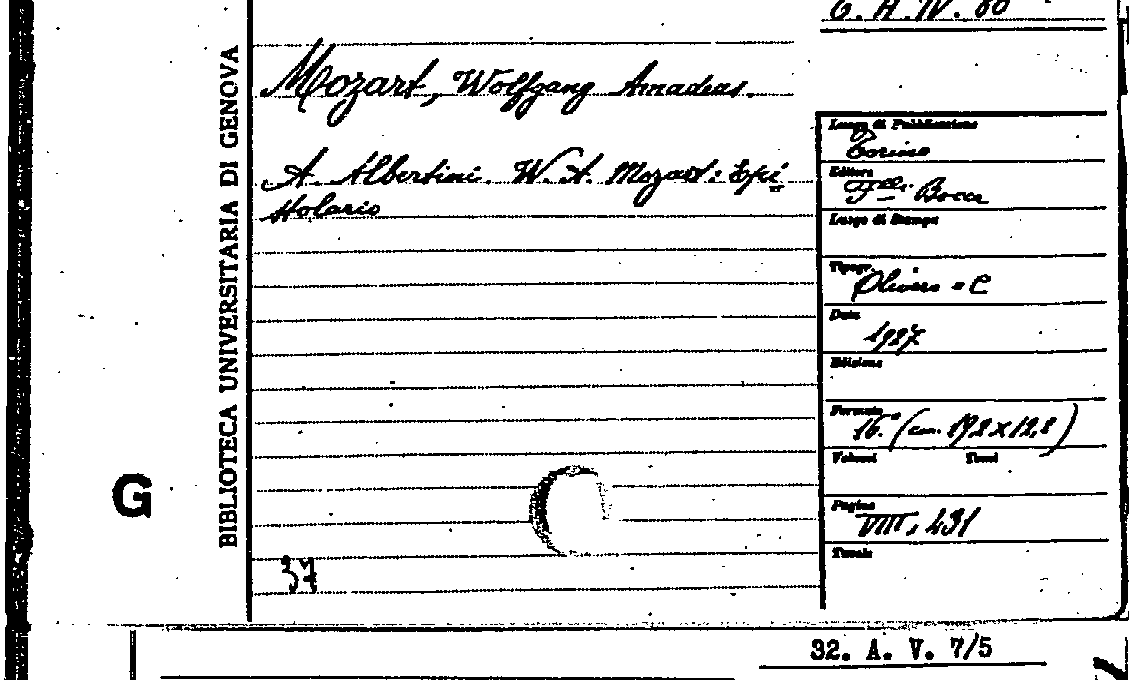 6. A. IV. 60
BIBLIOTECA UNIVERSITARIA DI GENOVA
Mozart, Wolfgang Amadeus.
A. Albertini. W. A. Mozart: Epi
stolario
Luogo di Pubblicazione
Torino
Editore
F.lli Bocca
Luogo di Stampa
Tipogr.
Olivero e C
Data
1927
Edizione
Formato
16.° (cm. 19,2 x 12,8)
Volumi Tomi
Pagine
VIII, 231
Tavole
G
37
32. A. V. 7/5